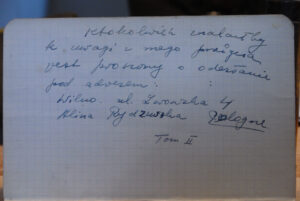 Ktokolwiek znalazłby
te uwagi z mego
jest proszony o odesłanie
pod adresem:
Wilno. ul. Lwowska 4
Alina Rydzewska Pologne
Tom II